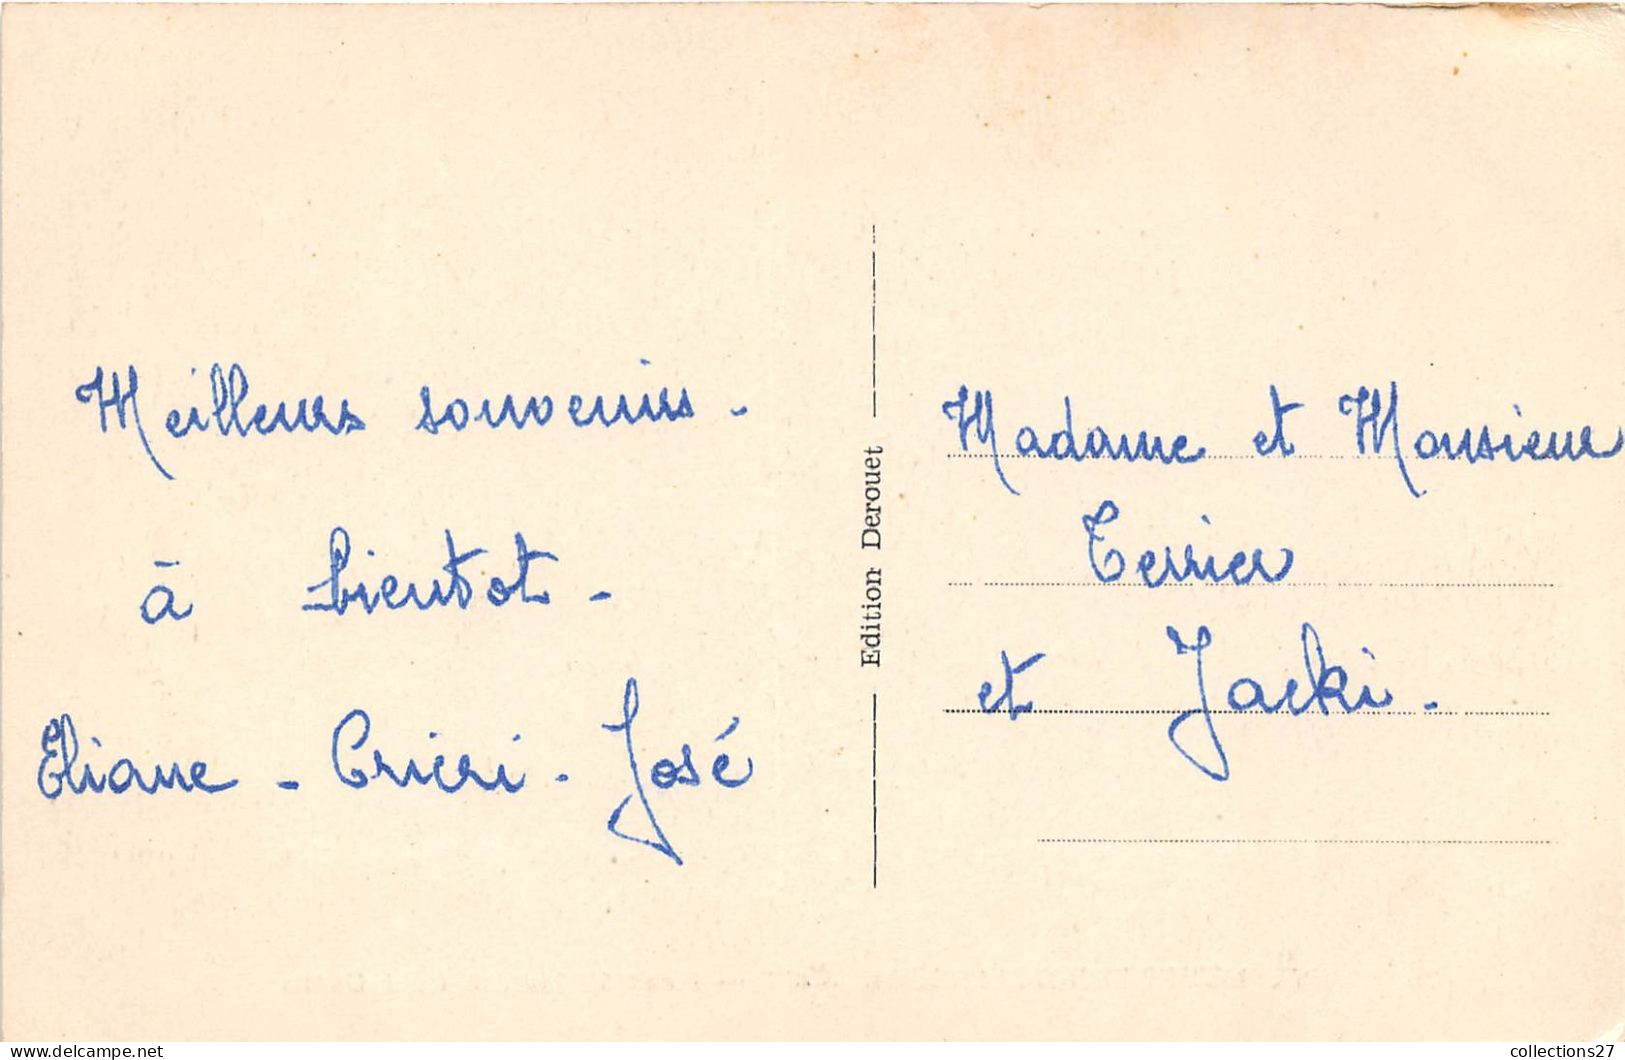 Meilleurs souvenirs -
à bientot -
Eliane - Cricri - José
Edition Derouet
Madame et Monsieur
Terrier
et Jacki.
www.delcampe.net
collections27